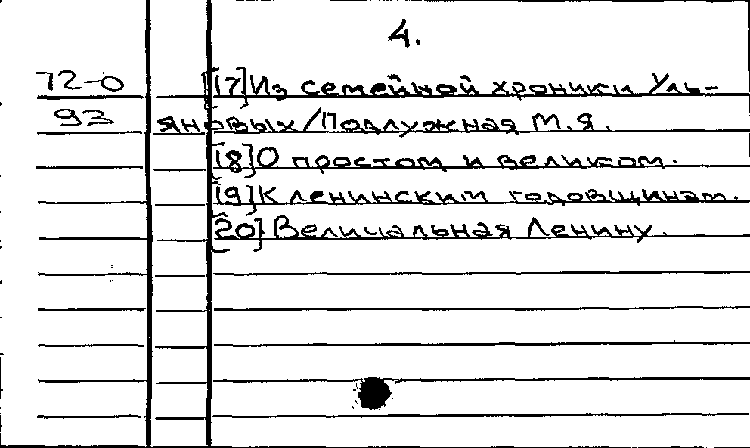 4.
72-0 [17] Из семейной хроники Уль-
93 яновых / Подлужная М.Я.
[18] О простом и великом.
[19] К ленинским годовщинам.
[20] Величальная Ленину.